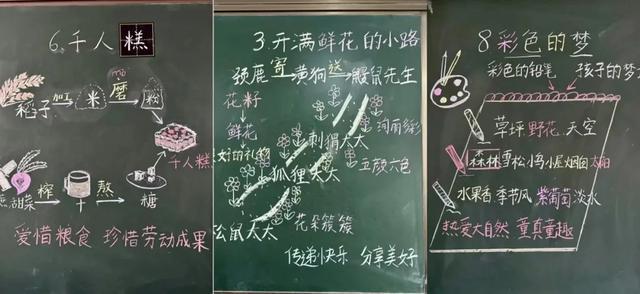 6.千人糕
mó
稻子 加工 米 磨 粉
千人糕
甜菜 榨 汁 熬 糖
爱惜粮食 珍惜劳动成果
3.开满鲜花的小路
颈鹿 寄 黄狗 送 鼹鼠先生
花籽
鲜花
刺猬太太
绚丽多彩
美好的礼物
狐狸太太
五颜六色
松鼠太太
花朵簇簇
传递快乐 分享美好
8.彩色的梦
彩色的铅笔 孩子的梦
草坪 野花 天空
森林 雪松 小鸟 小屋 烟囱 太阳
水果香 季节风 紫葡萄 淡水
热爱大自然 童真童趣